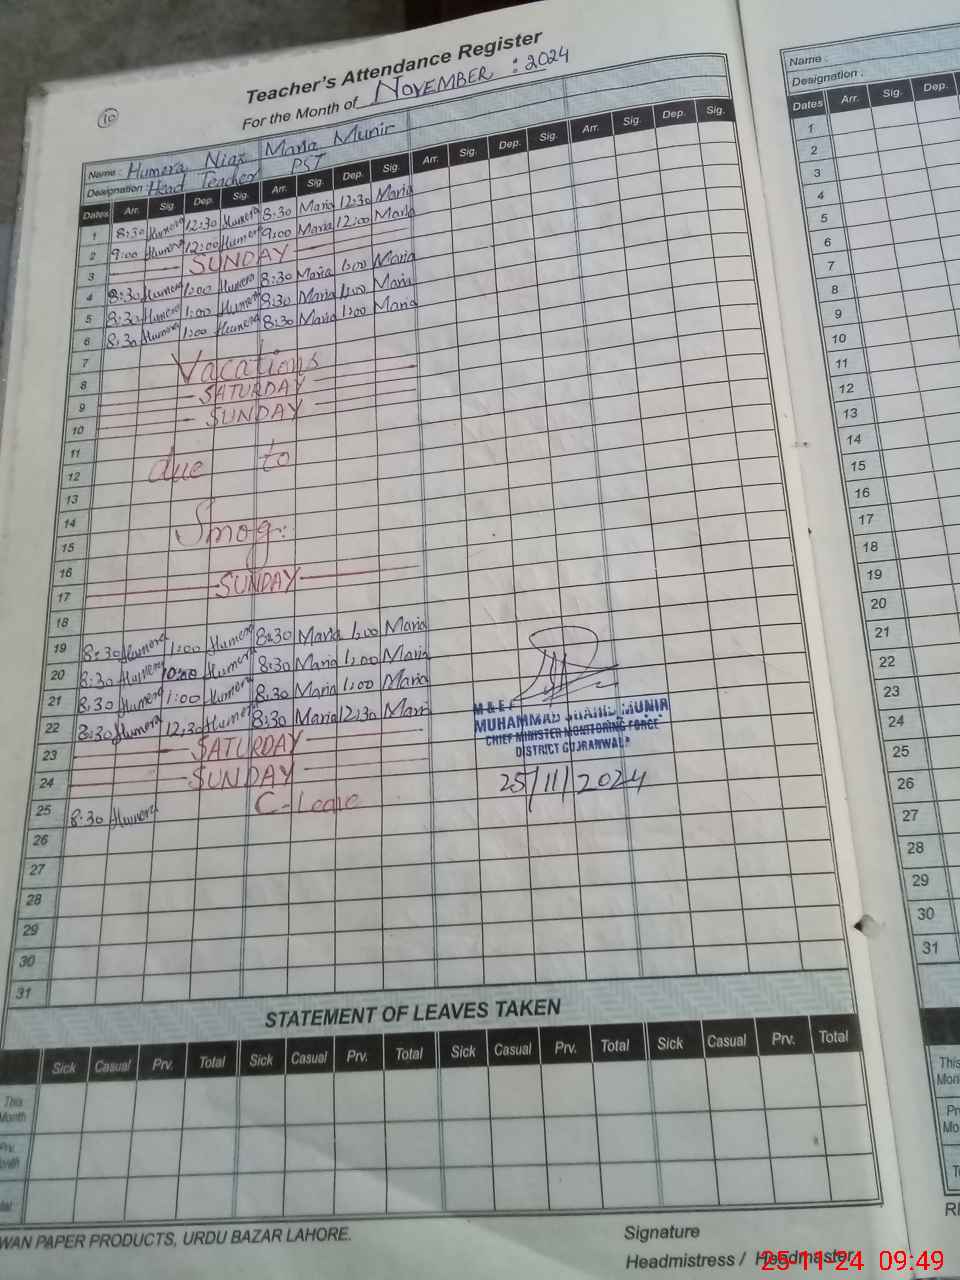 Teacher's Attendance Register
10
For the Month of NOVEMBER : 2024
Name : Humera Niaz Maria Munir
Designation Head Teacher PST
Dates Arr. Sig. Dep. Sig. Arr. Sig. Dep. Sig. Arr. Sig. Dep. Sig. Arr. Sig. Dep. Sig.
1 8:30 Humera 12:30 Humera 8:30 Maria 12:30 Maria
2 9:00 Humera 12:00 Humera 9:00 Maria 12:00 Maria
3 SUNDAY
4 8:30 Humera 1:00 Humera 8:30 Maria 1:00 Maria
5 8:30 Humera 1:00 Humera 8:30 Maria 1:00 Maria
6 8:30 Humera 1:00 Humera 8:30 Maria 1:00 Maria
7 Vacations
8
9 SATURDAY
10 SUNDAY
11
12 due to
13
14
15 Smog:
16
17 SUNDAY
18
19 8:30 Humera 1:00 Humera 8:30 Maria 1:00 Maria
20 8:30 Humera 10:00 Humera 8:30 Maria 1:00 Maria
21 8:30 Humera 1:00 Humera 8:30 Maria 1:00 Maria
22 8:30 Humera 12:30 Humera 8:30 Maria 12:30 Maria
23 SATURDAY
24 SUNDAY
25 8:30 Humera C-Leave
26
27
28
29
30
31
M & E
MUHAMMAD SHAHID MUNIR
CHIEF MINISTER MONITORING FORCE
DISTRICT GUJRANWALA
25/11/2024
STATEMENT OF LEAVES TAKEN
Sick Casual Prv. Total Sick Casual Prv. Total Sick Casual Prv. Total Sick Casual Prv. Total
This
Month
WAN PAPER PRODUCTS, URDU BAZAR LAHORE.
Signature
Headmistress / Headmaster
Name :
Designation :
Dates Arr. Sig. Dep.
1
2
3
4
5
6
7
8
9
10
11
12
13
14
15
16
17
18
19
20
21
22
23
24
25
26
27
28
29
30
31
This
25-11-24 09:49